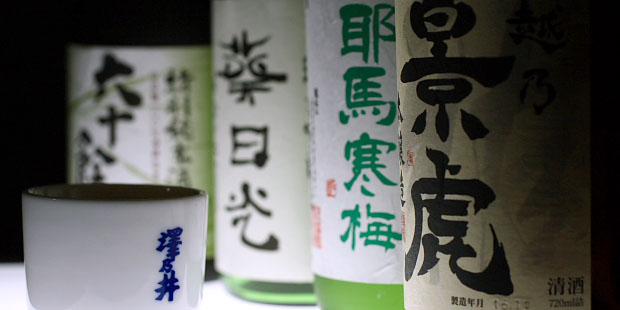 六十餘洲
特別純米酒
葵日光
耶馬寒梅
越乃
景虎
清酒
720ml詰
製造年月
澤乃井